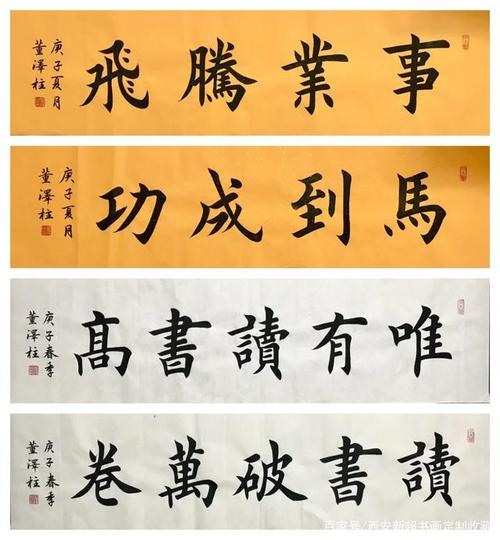 事業騰飛
庚子夏月
董澤柱
馬到成功
庚子夏月
董澤柱
唯有讀書髙
庚子春季
董澤柱
讀書破萬卷
庚子春季
董澤柱
百家号/西安新超书画定制收藏